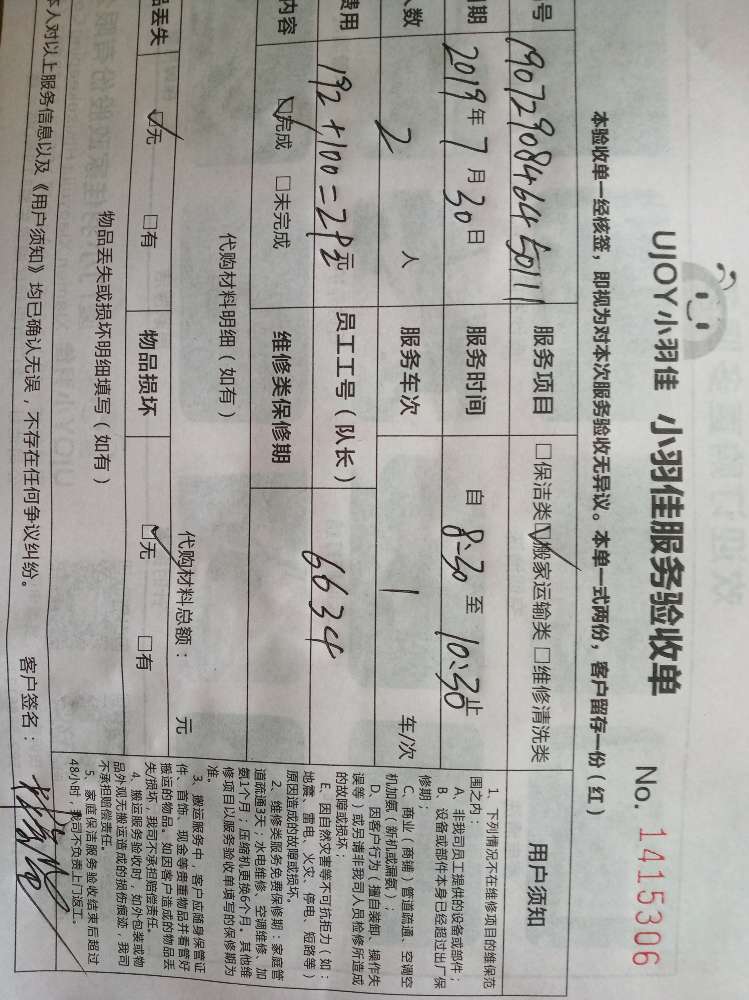 UJOY小羽佳 小羽佳服务验收单
No. 1415306
本验收单一经核签，即视为对本次服务验收无异议。本单一式两份，客户留存一份（红）
号 服务项目 □保洁类 ☑搬家运输类 □维修清洗类
期 2019年7月30日 服务时间 自 8:30 至 10:30 止
人数 2 人 服务车次 1 车/次
费用 192+100=292元 员工工号（队长） 6634
内容 ☑完成 □未完成 维修类保修期
代购材料明细（如有）
代购材料总额： 元
品丢失 ☑无 □有 物品损坏 ☑无 □有
物品丢失或损坏明细填写（如有）
本人对以上服务信息以及《用户须知》均已确认无误，不存在任何争议纠纷。 客户签名：
用户须知
1、下列情况不在维修项目的维保范
围之内：
A、非我司员工提供的设备或部件；
B、设备或部件本身已经超过出厂保
修期；
C、商业（商铺）管道疏通、空调空
机加氨（新机或漏氨）；
D、因客户行为（擅自装卸、操作失
误等）或另请非我司人员检修所造成
的故障或损坏；
E、因自然灾害等不可抗拒力（如：
地震、雷电、火灾、停电、短路等）
原因造成的故障或损坏。
2、维修类服务免费保修期：家庭管
道疏通3天；水电维修、空调维修、加
氨1个月；压缩机更换6个月。其他维
修项目以服务验收单填写的保修期为
准。
3、搬运服务中，客户应随身保管证
件、首饰、现金等贵重物品并看管好
搬运的物品。如因客户造成的物品丢
失/损坏，我司不承担赔偿责任。
4、搬运服务验收时，如外包装或物
品外观无搬运造成的损伤痕迹，我司
不承担赔偿责任。
5、家庭保洁服务验收结束后超过
48小时，我司不负责上门返工。